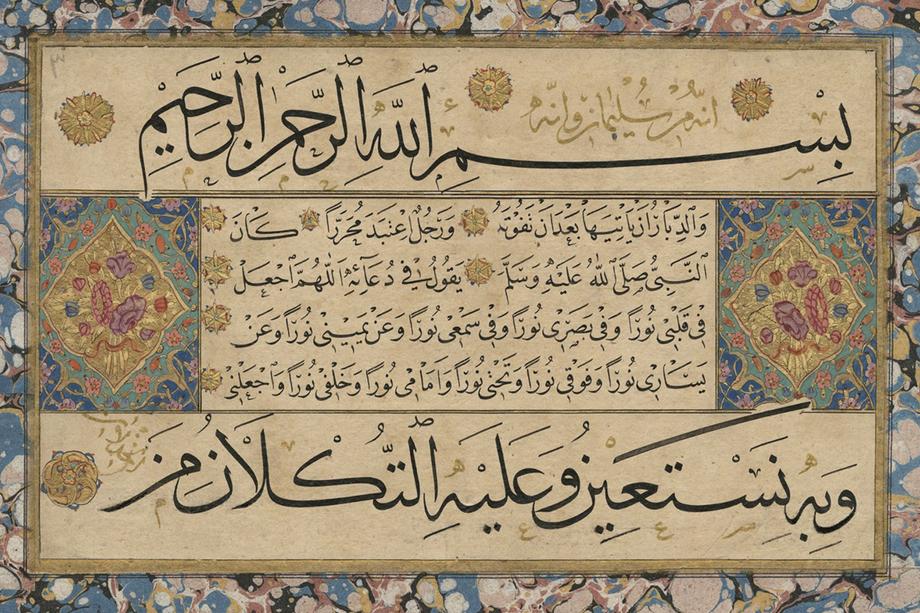 بِسْمِ اللّٰهِ الرَّحْمٰنِ الرَّحِيْمِ
انه من سليمان وانه
وَرَجُلٌ اعْتَبَدَ مُحَرَّرًا كَانَ
النَّبِيُّ صَلَّى اللّٰهُ عَلَيْهِ وَسَلَّمَ يَقُولُ فِي دُعَائِهِ اَللّٰهُمَّ اجْعَلْ
فِي قَلْبِي نُورًا وَفِي بَصَرِي نُورًا وَفِي سَمْعِي نُورًا وَعَنْ يَمِينِي نُورًا وَعَنْ
يَسَارِي نُورًا وَفَوْقِي نُورًا وَتَحْتِي نُورًا وَاَمَامِي نُورًا وَخَلْفِي نُورًا وَاجْعَلْنِي
وَبِهِ نَسْتَعِينُ وَعَلَيْهِ التُّكْلَانُ مِنْ